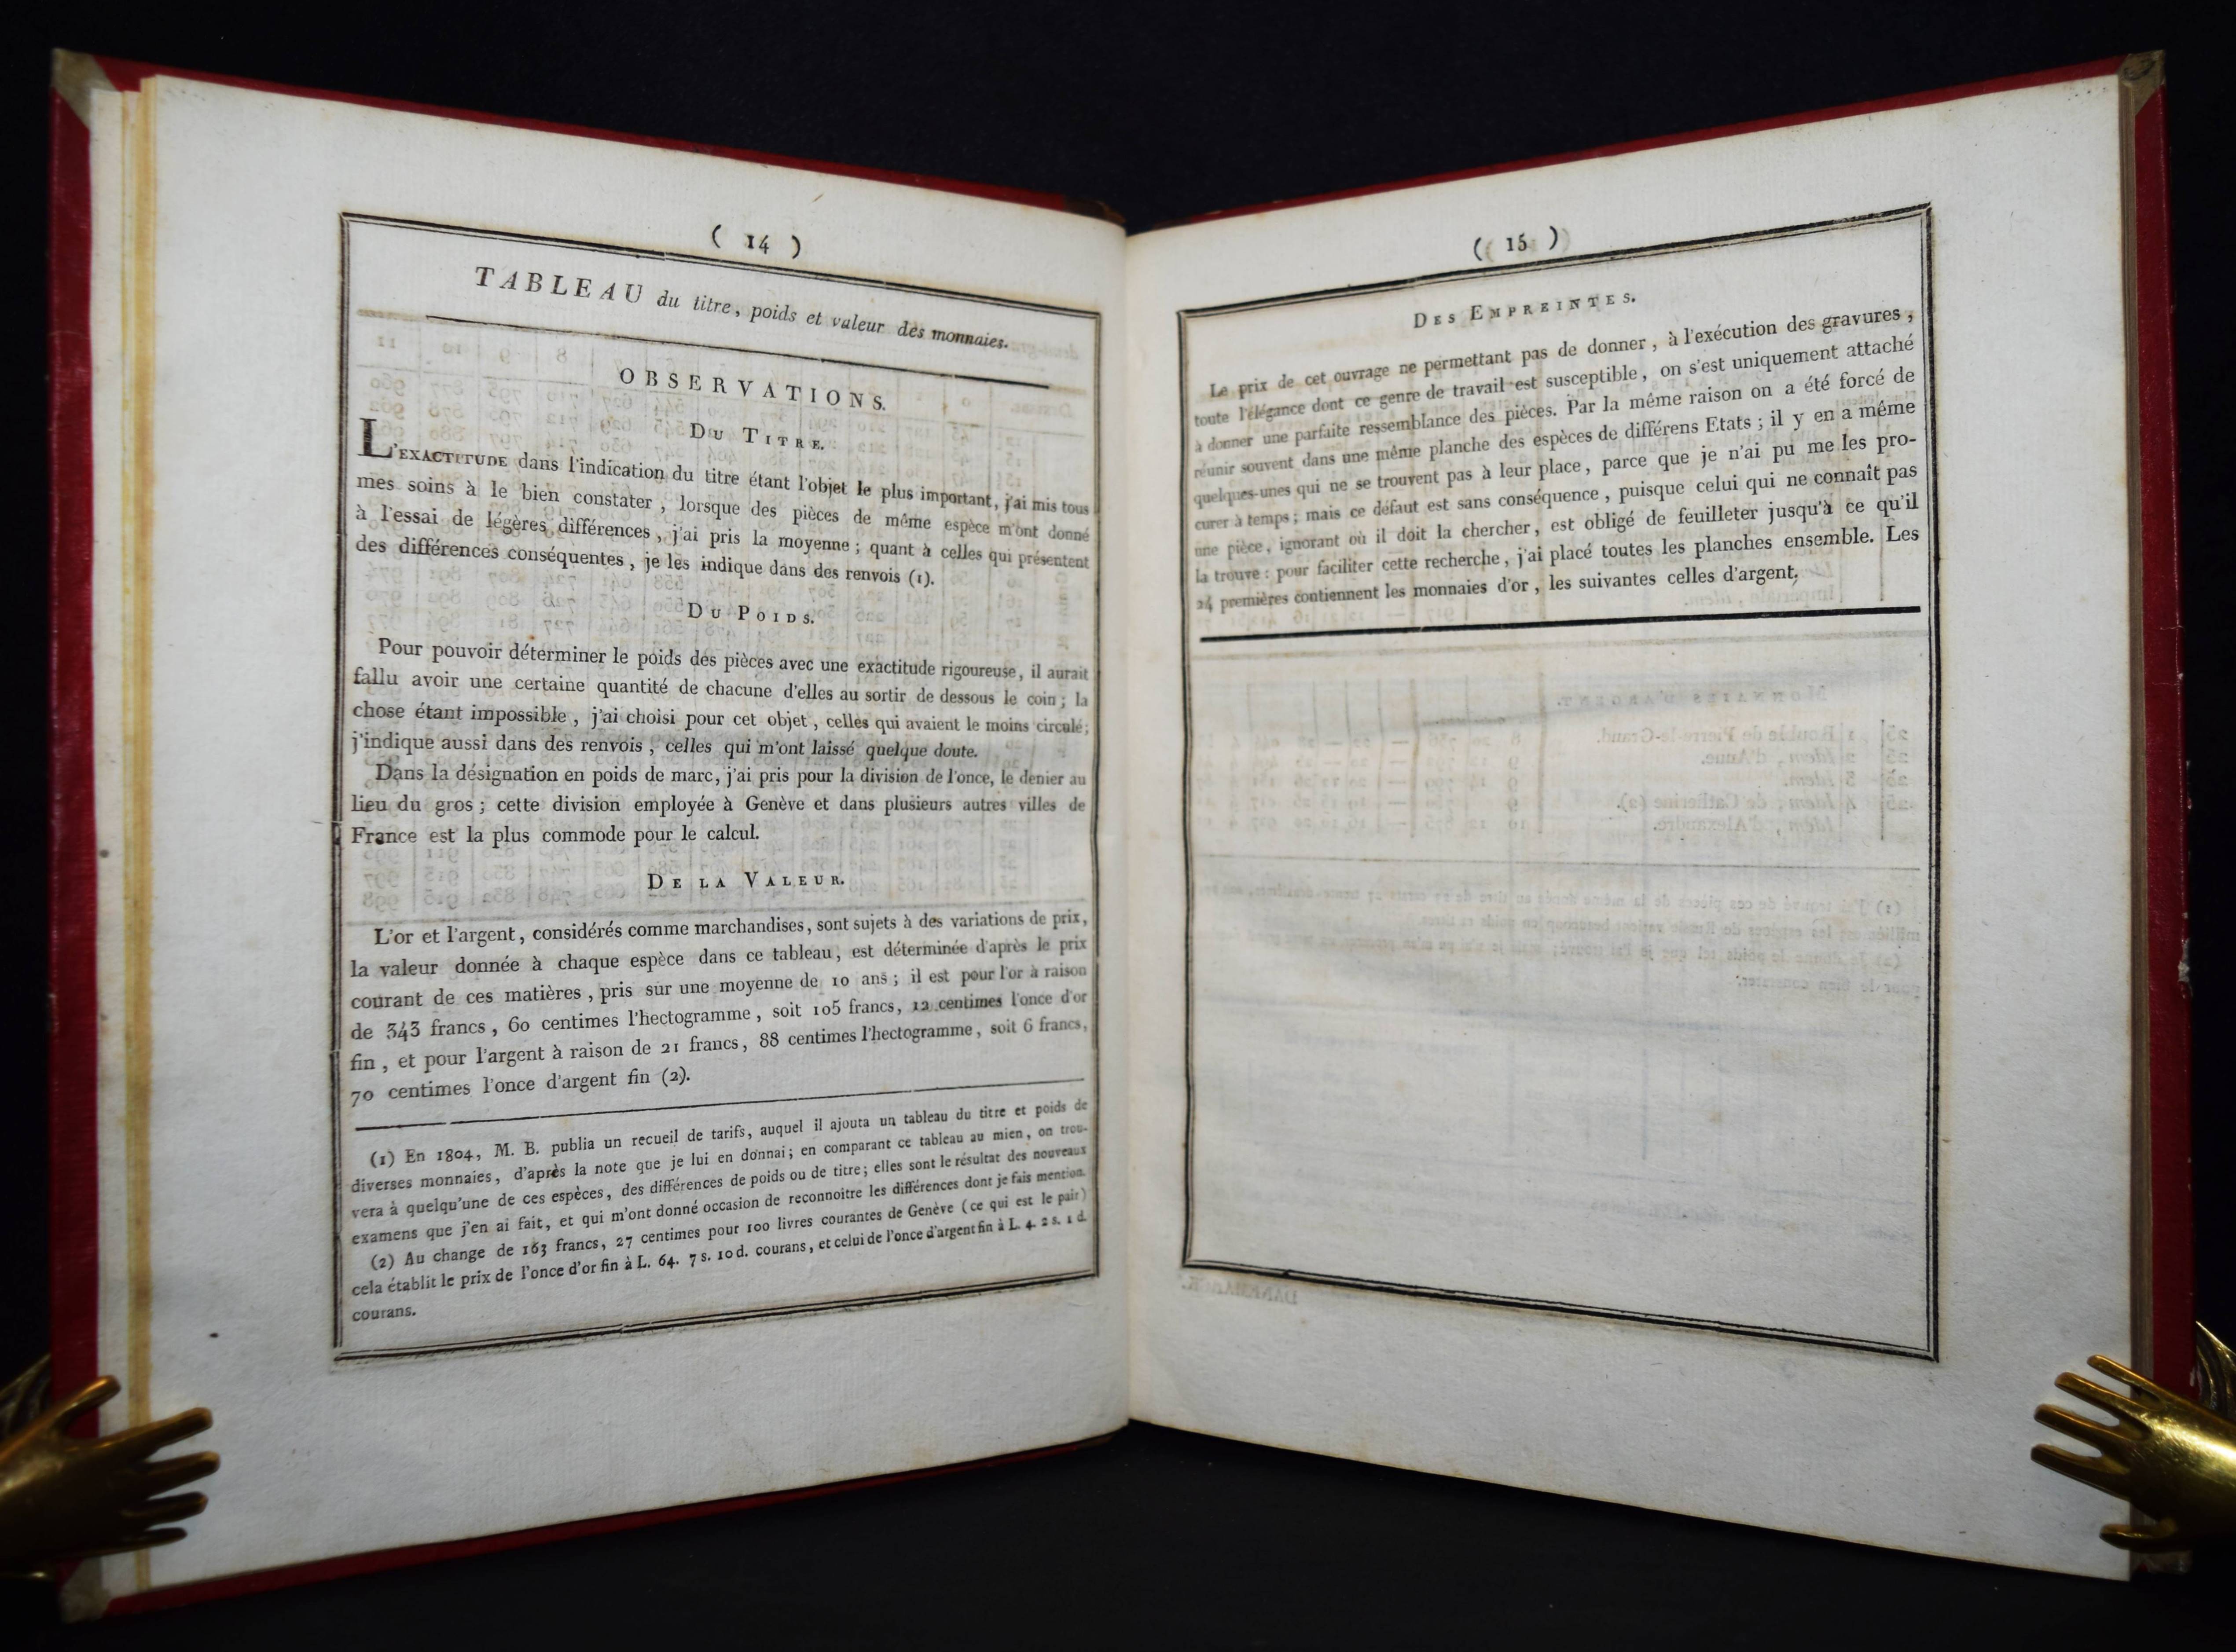 ( 14 )
TABLEAU du titre, poids et valeur des monnaies.
OBSERVATIONS.
DU TITRE.
L'EXACTITUDE dans l'indication du titre étant l'objet le plus important, j'ai mis tous
mes soins à le bien constater, lorsque des pièces de même espèce m'ont donné
à l'essai de légères différences, j'ai pris la moyenne; quant à celles qui présentent
des différences conséquentes, je les indique dans des renvois (1).
DU POIDS.
Pour pouvoir déterminer le poids des pièces avec une exactitude rigoureuse, il aurait
fallu avoir une certaine quantité de chacune d'elles au sortir de dessous le coin; la
chose étant impossible, j'ai choisi pour cet objet, celles qui avaient le moins circulé;
j'indique aussi dans des renvois, celles qui m'ont laissé quelque doute.
Dans la désignation en poids de marc, j'ai pris pour la division de l'once, le denier au
lieu du gros; cette division employée à Genève et dans plusieurs autres villes de
France est la plus commode pour le calcul.
DE LA VALEUR.
L'or et l'argent, considérés comme marchandises, sont sujets à des variations de prix,
la valeur donnée à chaque espèce dans ce tableau, est déterminée d'après le prix
courant de ces matières, pris sur une moyenne de 10 ans; il est pour l'or à raison
de 343 francs, 60 centimes l'hectogramme, soit 105 francs, 12 centimes l'once d'or
fin, et pour l'argent à raison de 21 francs, 88 centimes l'hectogramme, soit 6 francs,
70 centimes l'once d'argent fin (2).
(1) En 1804, M. B. publia un recueil de tarifs, auquel il ajouta un tableau du titre et poids de
diverses monnaies, d'après la note que je lui en donnai; en comparant ce tableau au mien, on trou-
vera à quelqu'une de ces espèces, des différences de poids ou de titre; elles sont le résultat des nouveaux
examens que j'en ai fait, et qui m'ont donné occasion de reconnoitre les différences dont je fais mention.
(2) Au change de 163 francs, 27 centimes pour 100 livres courantes de Genève (ce qui est le pair)
cela établit le prix de l'once d'or fin à L. 64. 7 s. 10 d. courans, et celui de l'once d'argent fin à L. 4. 2 s. 1 d.
courans.
( 15 )
DES EMPREINTES.
Le prix de cet ouvrage ne permettant pas de donner, à l'exécution des gravures,
toute l'élégance dont ce genre de travail est susceptible, on s'est uniquement attaché
à donner une parfaite ressemblance des pièces. Par la même raison on a été forcé de
réunir souvent dans une même planche des espèces de différens Etats; il y en a même
quelques-unes qui ne se trouvent pas à leur place, parce que je n'ai pu me les pro-
curer à temps; mais ce défaut est sans conséquence, puisque celui qui ne connaît pas
une pièce, ignorant où il doit la chercher, est obligé de feuilleter jusqu'à ce qu'il
la trouve: pour faciliter cette recherche, j'ai placé toutes les planches ensemble. Les
24 premières contiennent les monnaies d'or, les suivantes celles d'argent.